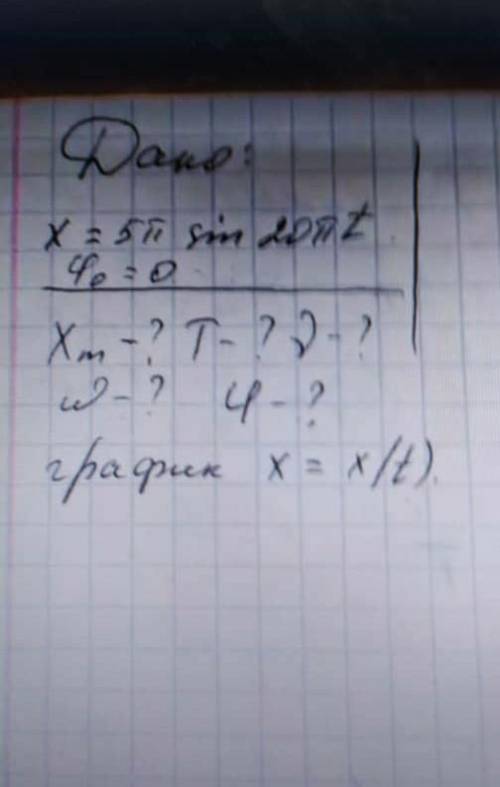 Дано:
x = 5π sin 20πt
φ₀ = 0
Xm - ? T - ? ν - ?
ω - ? φ - ?
график x = x(t).